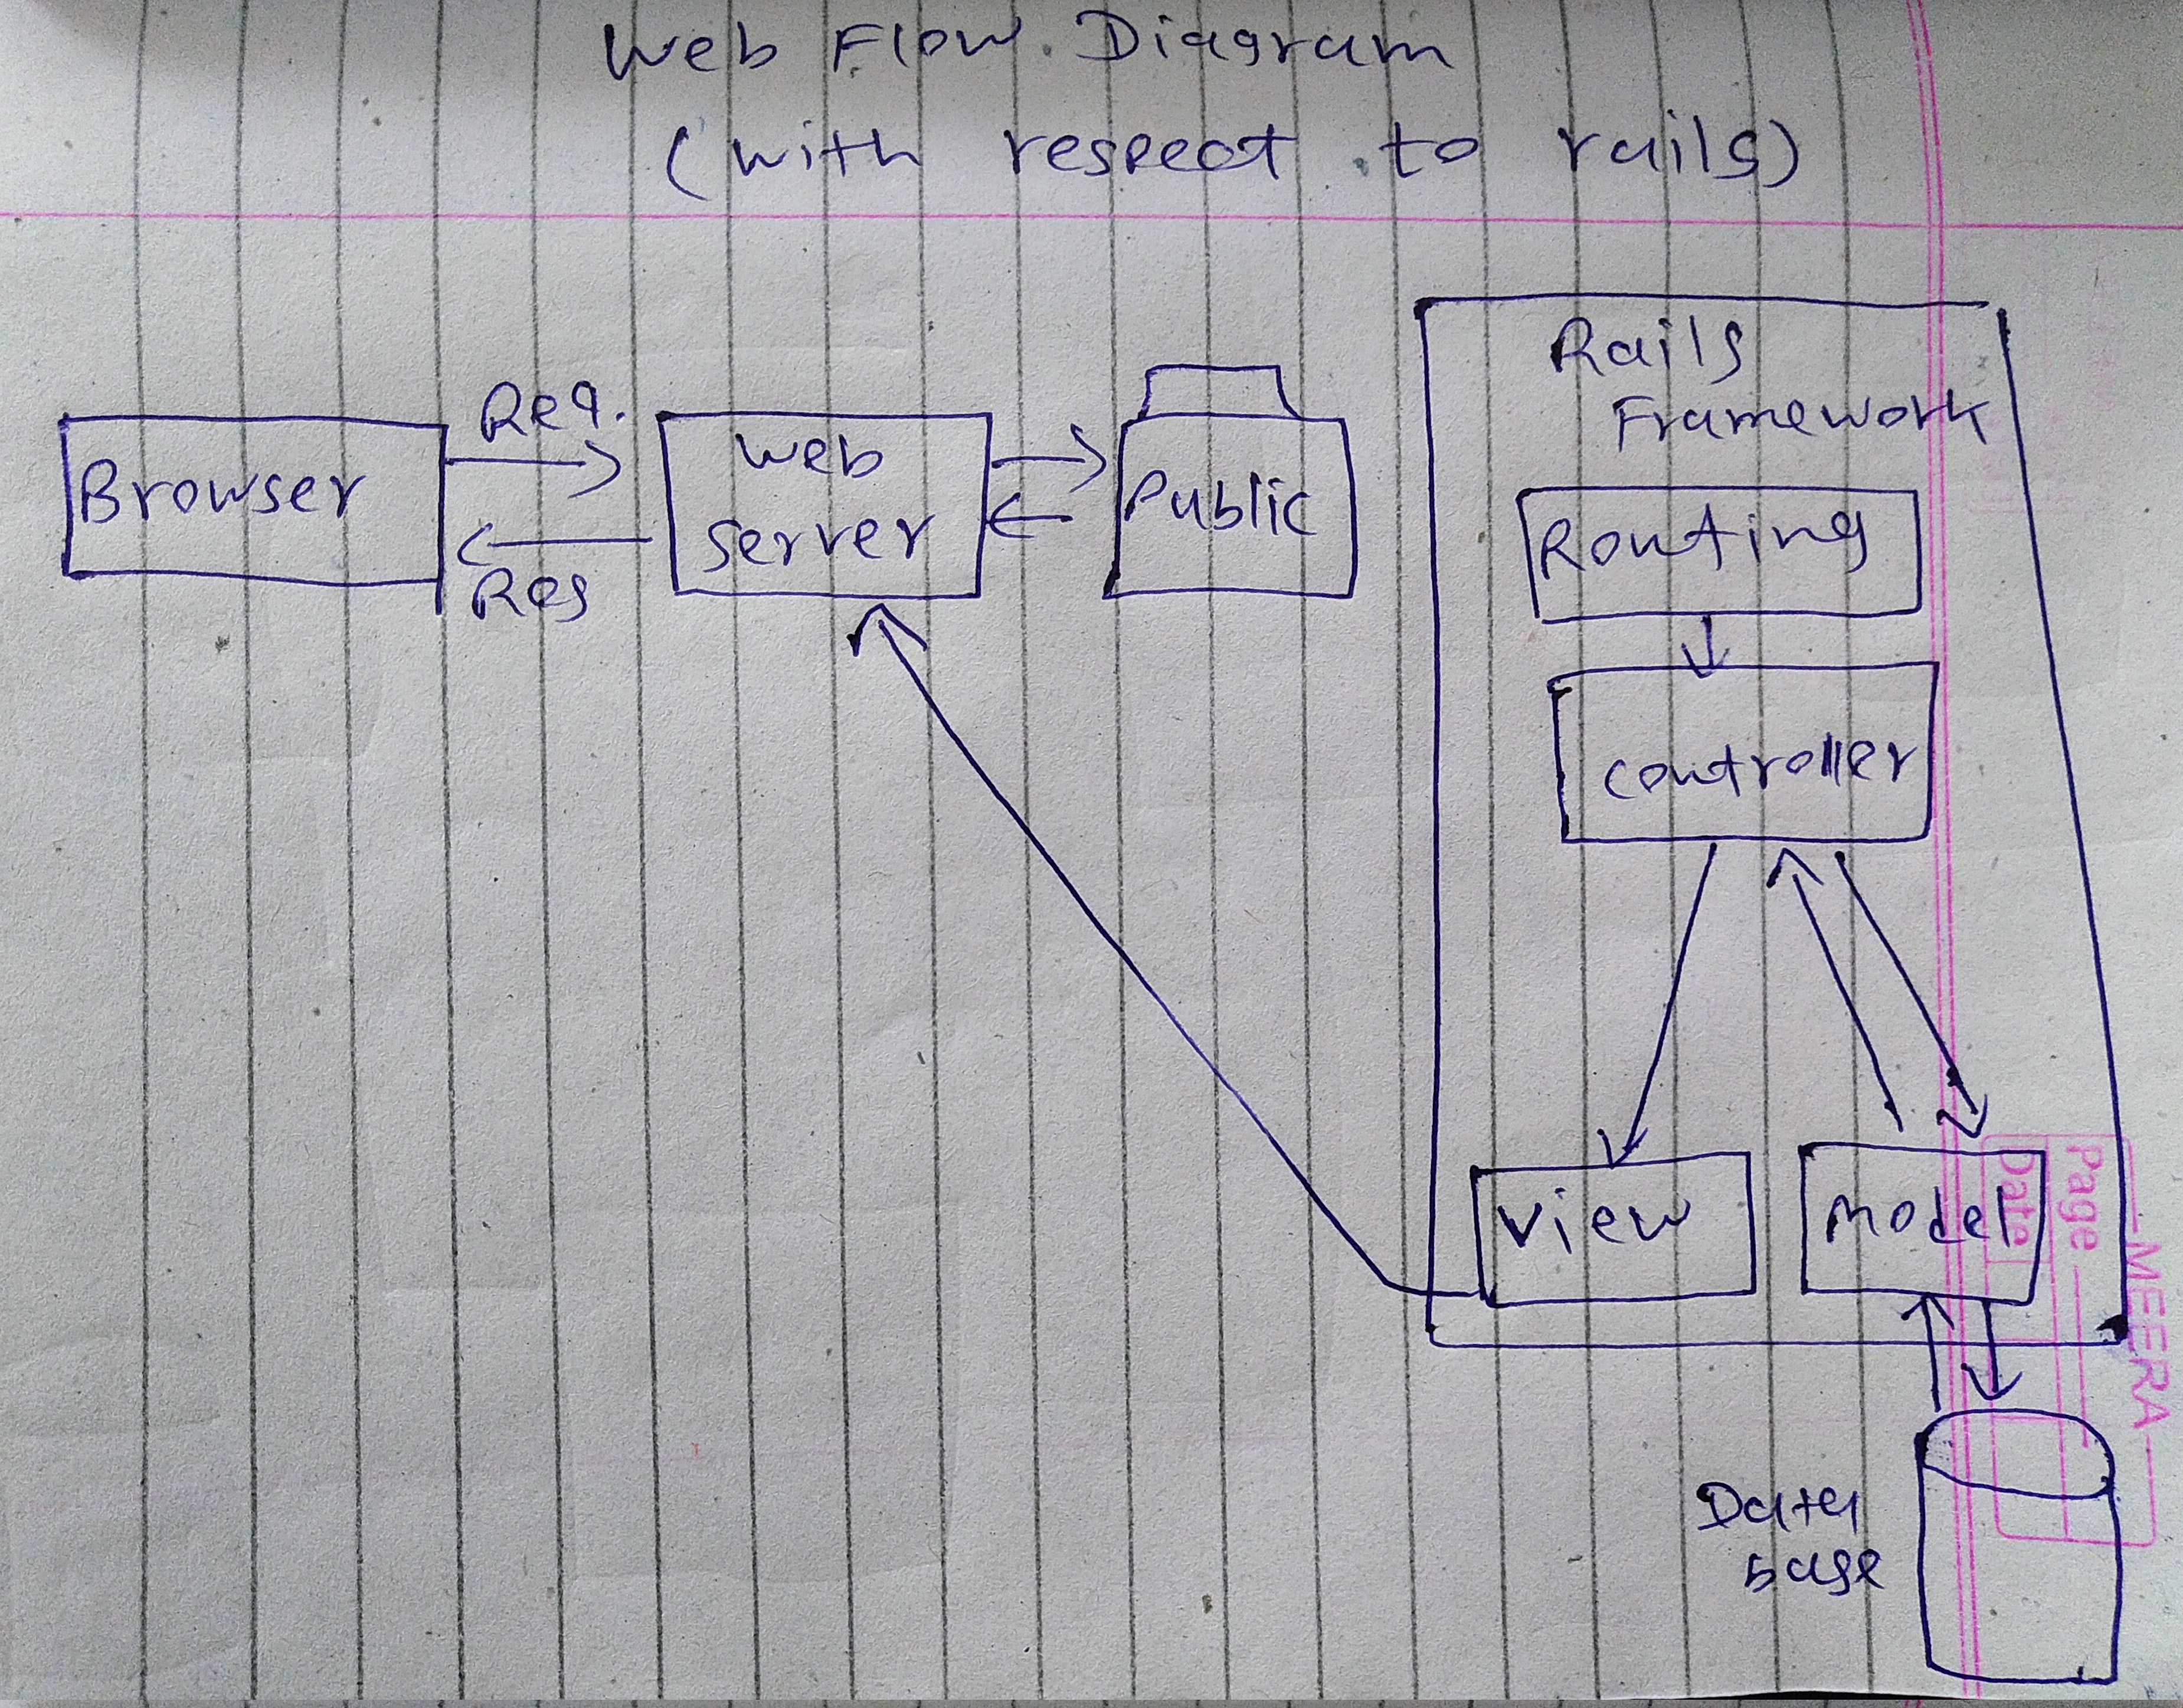 Web Flow Diagram
(with respect to rails)
Browser
Req.
Res
Web
server
Public
Rails
Framework
Routing
controller
View
Model
Data
base
Page
Date
MEERA